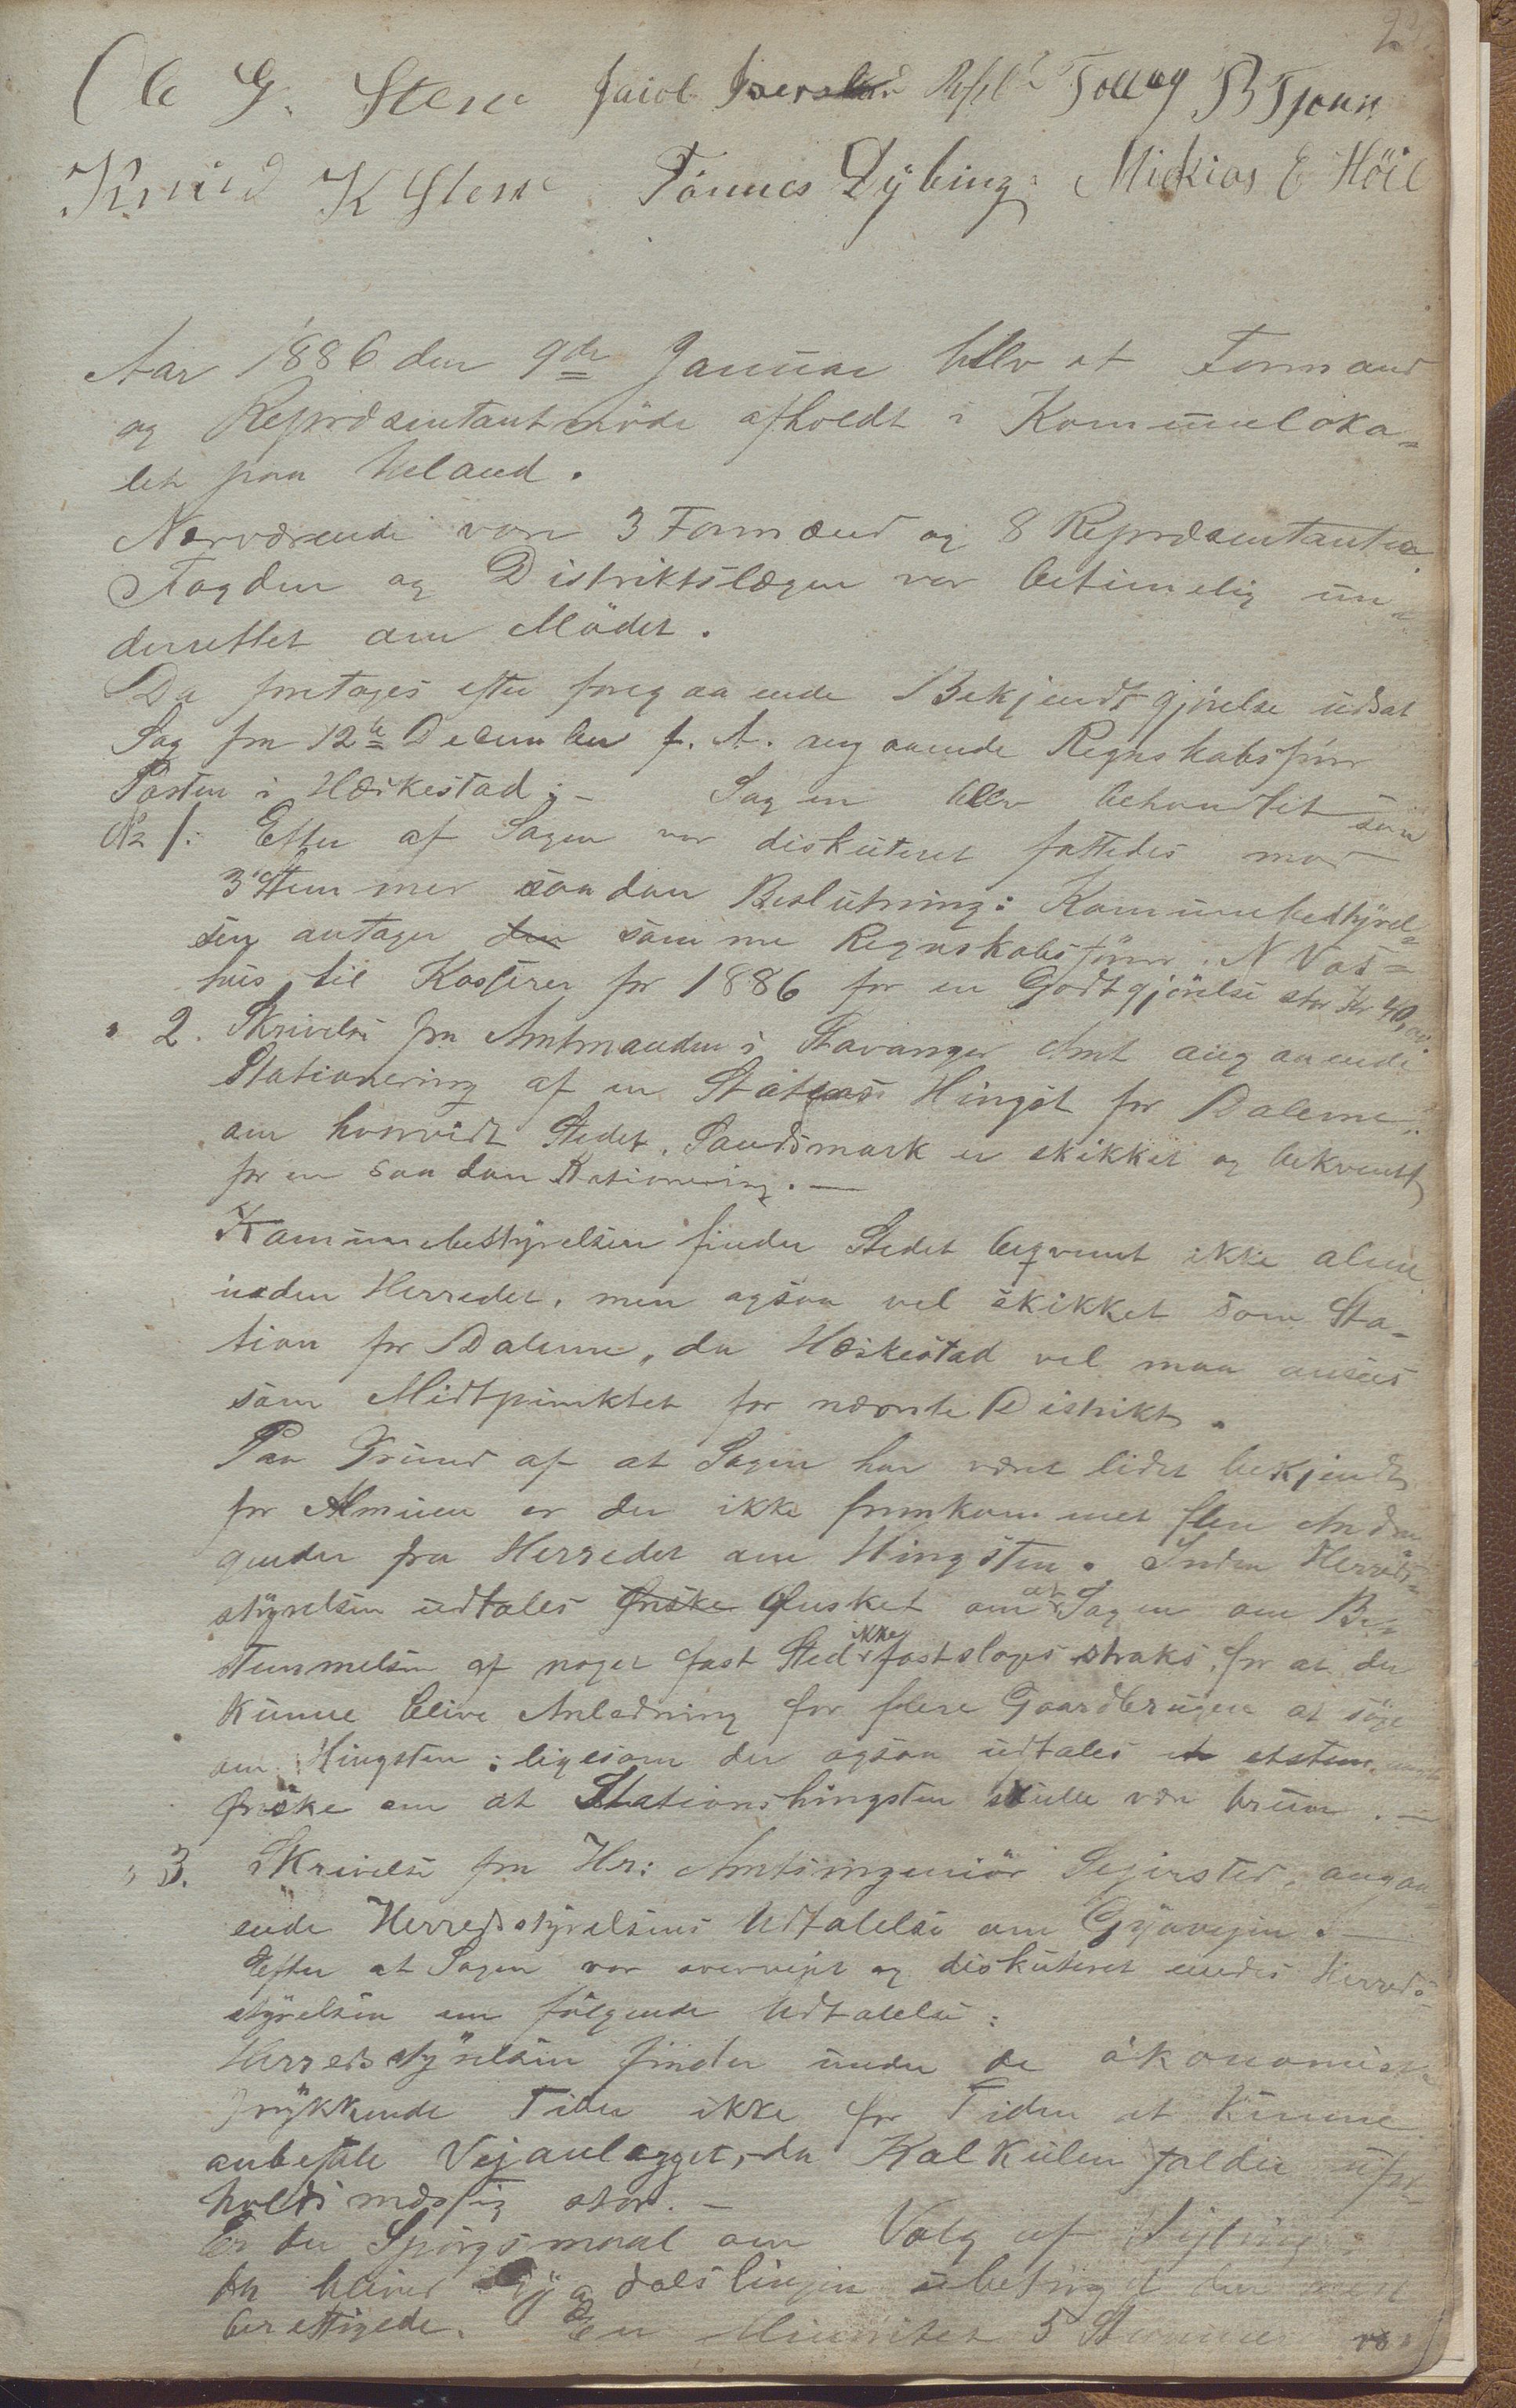 Ole G. Stene Jacob Iverslund Tollag B Tjørn
Knud K Stene Tönnes Dÿbing Mickias E Höie
Aar 1886 den 9de Januar blev et Formand
og Repræsentantmöde afholdt i Kommuneloka-
let paa Ueland.
Nærværende vare 3 Formænd og 8 Repræsentanter.
Fogden og Distriktslægen var betimelig un-
derrettet om Mödet.
Da foretoges efter foregaaende Bekjendtgjörelse udsat
Sag fra 12te December f. A. angaaende Regnskabsförer
Posten i Heskestad. – Sagen blev behandlet som
No 1: Efter at Sagen var diskuteret fattedes mod
3 Stemmer saadan Beslutning: Kommunebestyrel-
sen antager den samme Regnskabsförer N Vas-
hus til Kasserer for 1886 for en Godtgjörelse stor Kr 40,00
" 2. Skrivelse fra Amtmanden i Stavanger Amt angaaende
Stationering af en Statens Hingst for Dalerne:
om hvorvidt Stedet, Sandsmark er skikket og bekvemt
for en saadan Stationering. —
Kommunebestyrelsen finder Stedet beqvemt ikke alene
inden Herredet, men ogsaa vel skikket som Sta-
tion for Dalerne, da Heskestad vel maa ansees
som Midtpunktet for nævnte Distrikt.
Paa Grund af at Sagen har været lidet bekjendt
for Almuen er der ikke fremkommet flere Andra-
gender fra Herredet om Hingsten. Inden Herreds-
styrelsen udtales Ønske Ønsket om at Sagen om Be-
stemmelsen af noget fast Sted ikke fastsloges straks, for at der
kunne blive Anledning for flere Gaardbrugere at söge
om Hingsten: ligesom der ogsaa udtales et etstemmigt
Ønske om at Stationshingsten skulle være brun. —
" 3. Skrivelse fra Hr: Amtsingeniör Sejersted, angaa-
ende Herredsstyrelsens Udtalelse om Gyavejen. —
Efter at Sagen var overvejet og diskuteret enedes Herreds-
styrelsen om fölgende Udtalelse:
Herredsstyrelsen finder under de ökonomisk
trykkende Tider ikke for Tiden at kunne
anbefale Vejanlægget, da Kalkulen falder ufor-
holdsmæssig stor. —
Er der Spörgsmaal om Valg af
da bliver Gyadalslinjen ubetinget den mest
berettigede. En Minoritet 5 Stemmer